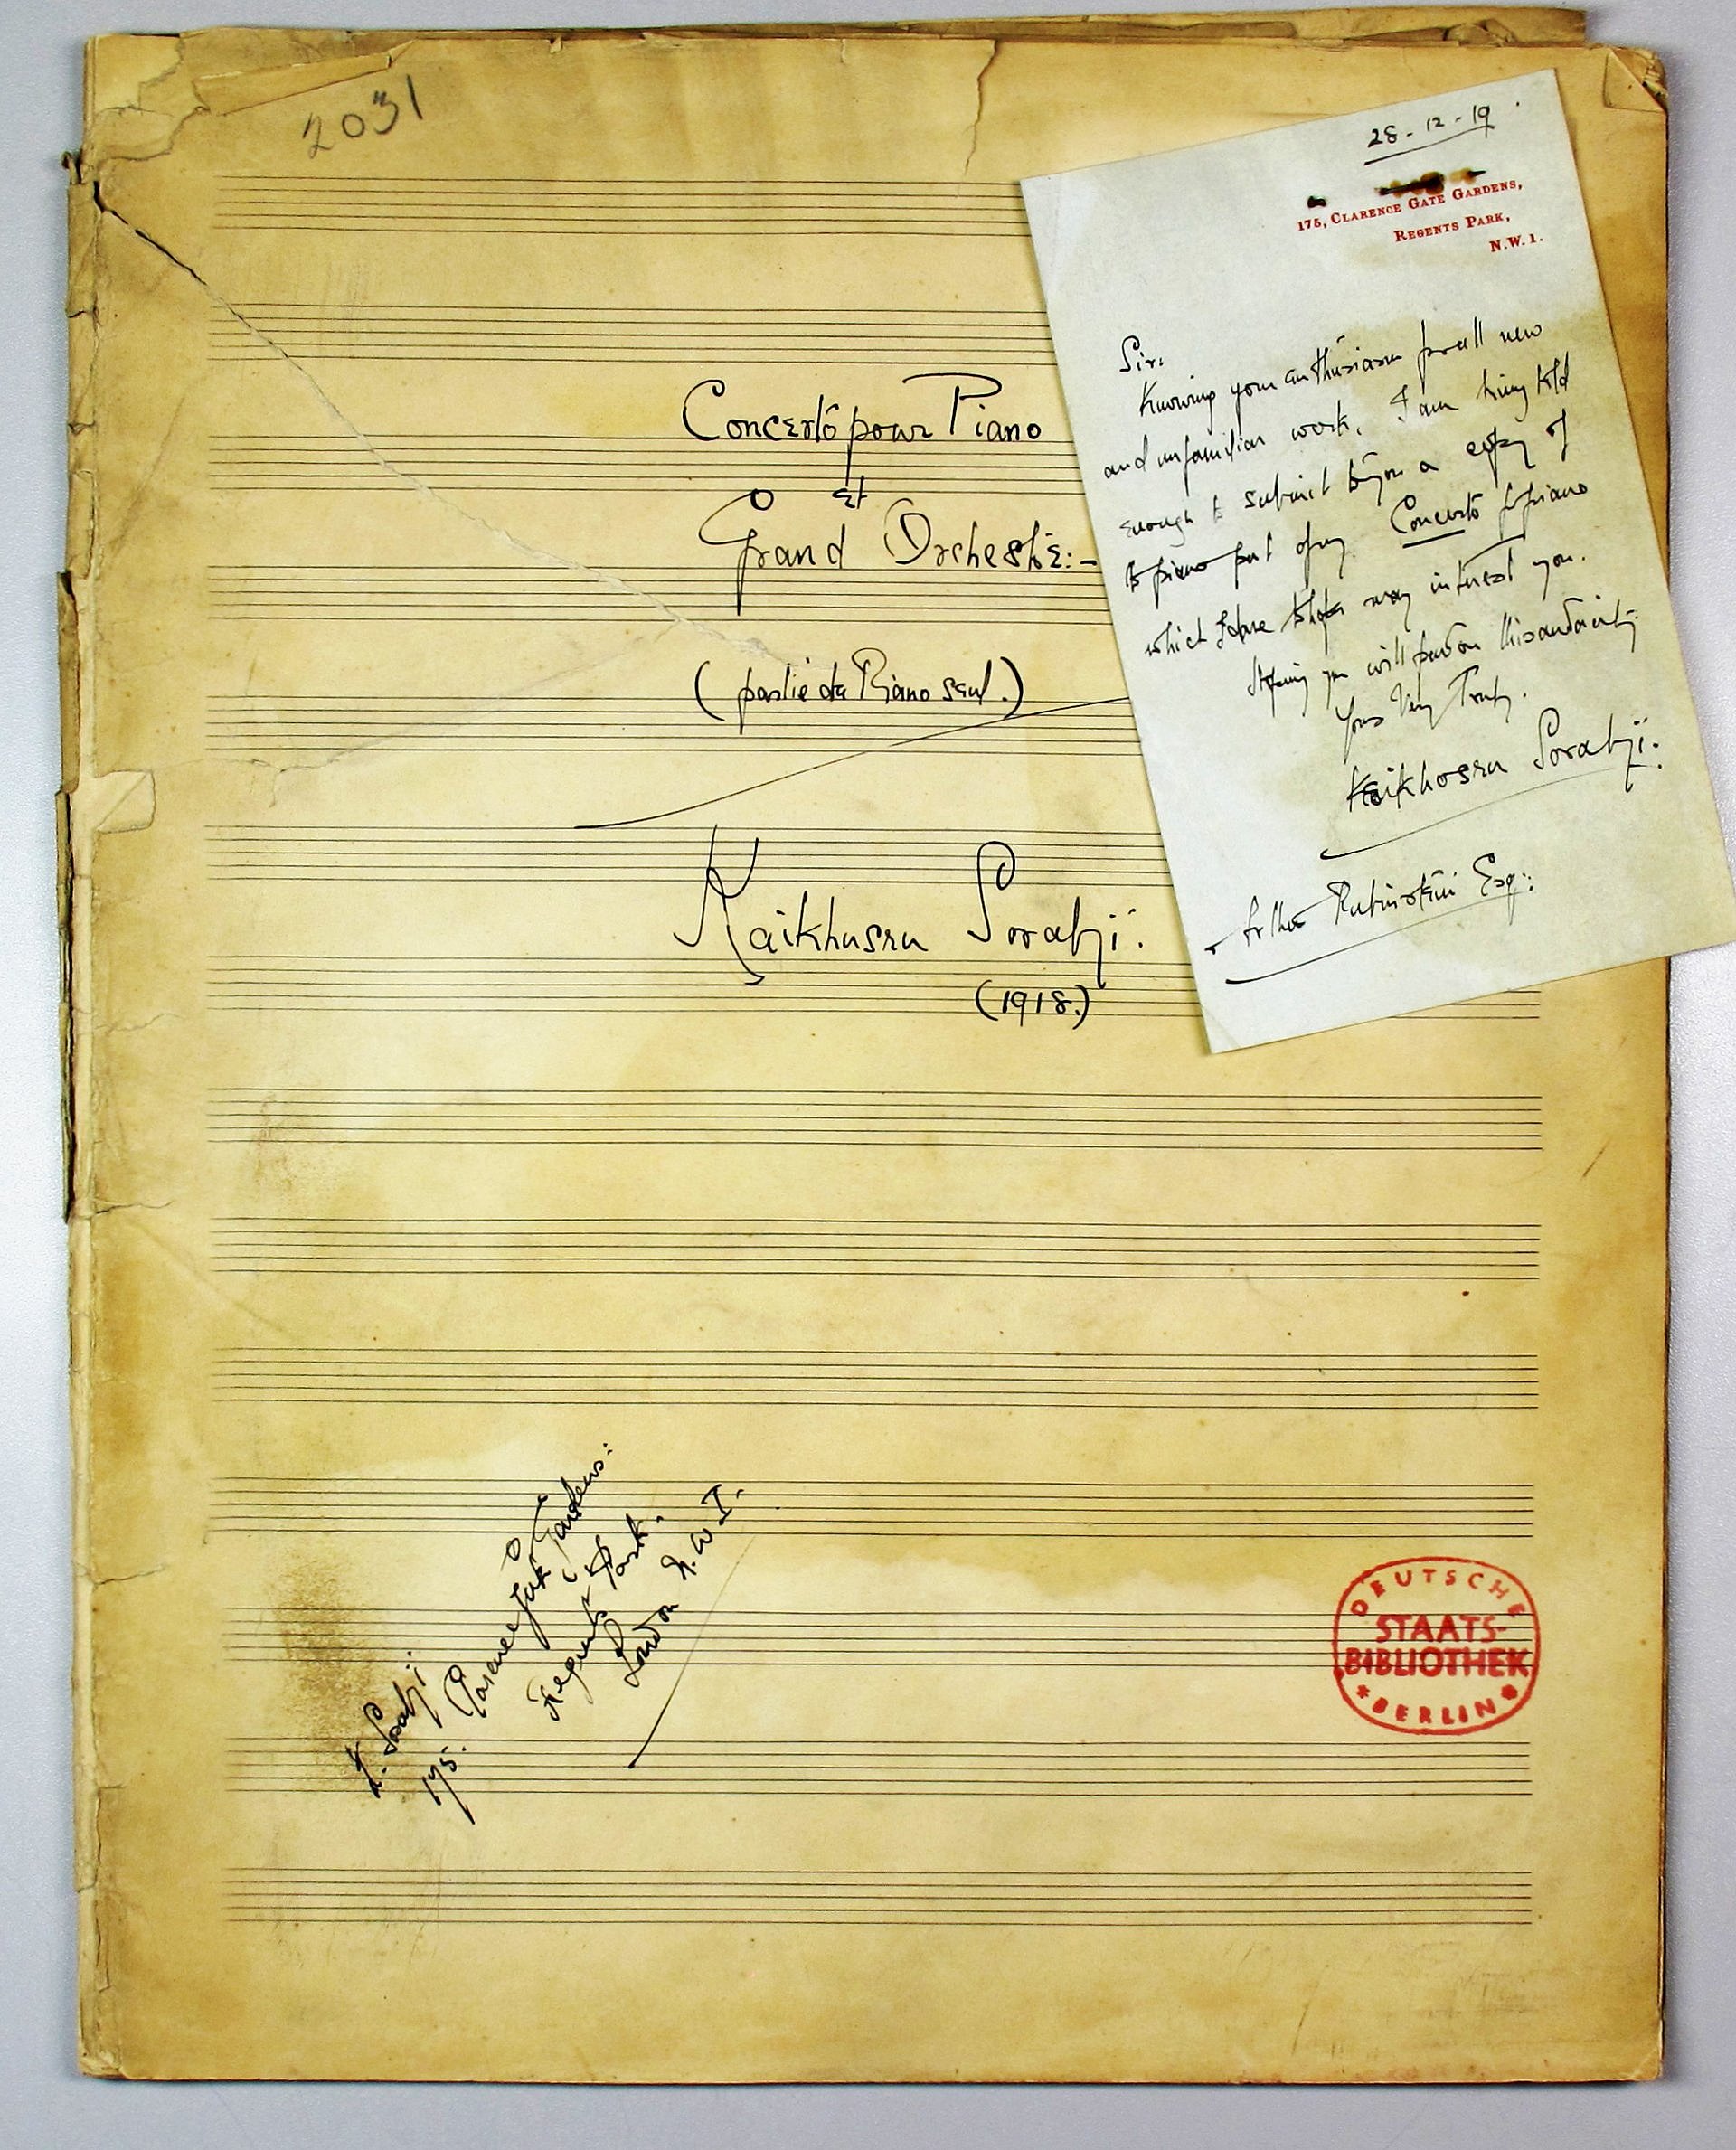 2031
Concerto pour Piano
et
Grand Orchestre:-
(partie de Piano seul.)
Kaikhusru Sorabji:
(1918.)
28-12-19
175, CLARENCE GATE GARDENS,
REGENTS PARK,
N.W.1.
Sir.
Knowing your enthusiasm for all new
and unfamiliar work, I am being told
enough to submit to you a copy of
piano part of my Concerto for piano
which I dare to hope may interest you.
Hoping you will pardon this audacity.
Yours Very Truly.
Kaikhosru Sorabji:
Arthur Rubinstein Esq:
K. Sorabji:
175. Clarence Gate Gardens:
Regents Park.
London N.W I.
DEUTSCHE
STAATS-
BIBLIOTHEK
* BERLIN *